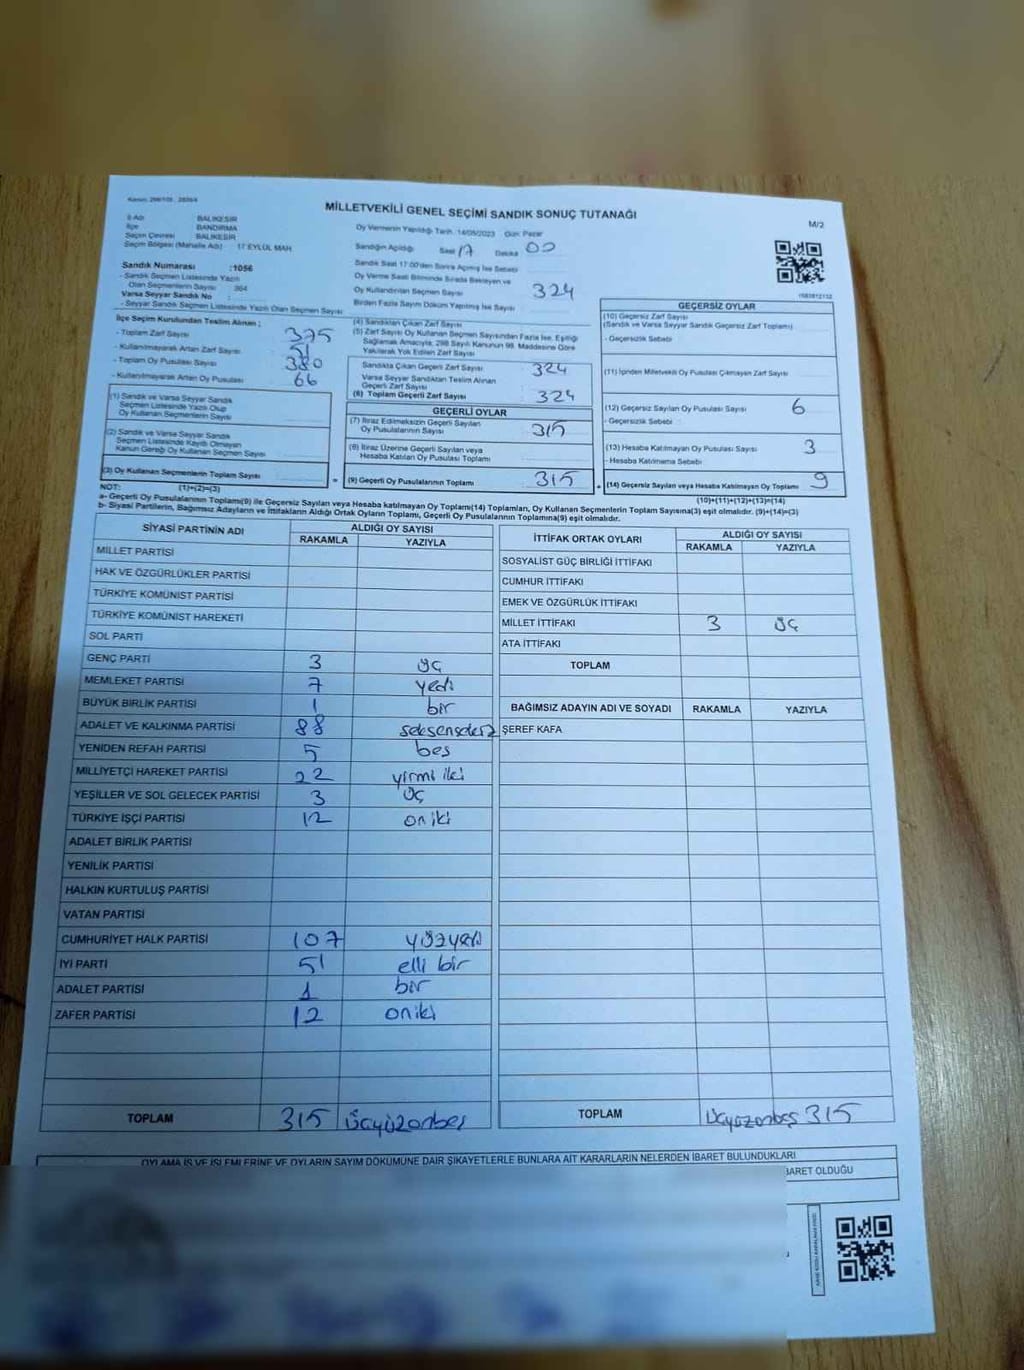 MİLLETVEKİLİ GENEL SEÇİMİ SANDIK SONUÇ TUTANAĞI
M/2
İl Adı BALIKESİR
İlçe BANDIRMA
Seçim Çevresi BALIKESİR
Seçim Bölgesi (Mahalle Adı) : 17 EYLÜL MAH
Oy Vermenin Yapıldığı Tarih : 14/05/2023 Gün: Pazar
Sandığın Açıldığı Saat 17 Dakika 00
Sandık Saat 17:00'den Sonra Açılmış İse Sebebi
Oy Verme Saati Bitiminde Sırada Bekleyen ve
Oy Kullandırılan Seçmen Sayısı 324
Birden Fazla Sayım Döküm Yapılmış İse Sayısı
Sandık Numarası :1056
- Sandık Seçmen Listesinde Yazılı
Olan Seçmenlerin Sayısı 364
Varsa Seyyar Sandık No :
- Seyyar Sandık Seçmen Listesinde Yazılı Olan Seçmen Sayısı
İlçe Seçim Kurulundan Teslim Alınan ;
- Toplam Zarf Sayısı 375
- Kullanılmayarak Artan Zarf Sayısı 51
- Toplam Oy Pusulası Sayısı 380
- Kullanılmayarak Artan Oy Pusulası 66
(1) Sandık ve Varsa Seyyar Sandık
Seçmen Listesinde Yazılı Olup
Oy Kullanan Seçmenlerin Sayısı
(2) Sandık ve Varsa Seyyar Sandık
Seçmen Listesinde Kayıtlı Olmayan
Kanun Gereği Oy Kullanan Seçmen Sayısı
(3) Oy Kullanan Seçmenlerin Toplam Sayısı
(4) Sandıktan Çıkan Zarf Sayısı
(5) Zarf Sayısı Oy Kullanan Seçmen Sayısından Fazla İse, Eşitliği
Sağlamak Amacıyla, 298 Sayılı Kanunun 98. Maddesine Göre
Yakılarak Yok Edilen Zarf Sayısı
Sandıkta Çıkan Geçerli Zarf Sayısı 324
Varsa Seyyar Sandıktan Teslim Alınan
Geçerli Zarf Sayısı
(6) Toplam Geçerli Zarf Sayısı 324
GEÇERLİ OYLAR
(7) İtiraz Edilmeksizin Geçerli Sayılan
Oy Pusulalarının Sayısı 315
(8) İtiraz Üzerine Geçerli Sayılan veya
Hesaba Katılan Oy Pusulası Toplamı
= (9) Geçerli Oy Pusulalarının Toplamı 315
GEÇERSİZ OYLAR
(10) Geçersiz Zarf Sayısı
(Sandık ve Varsa Seyyar Sandık Geçersiz Zarf Toplamı)
- Geçersizlik Sebebi
(11) İçinden Milletvekili Oy Pusulası Çıkmayan Zarf Sayısı
(12) Geçersiz Sayılan Oy Pusulası Sayısı 6
- Geçersizlik Sebebi
(13) Hesaba Katılmayan Oy Pusulası Sayısı 3
- Hesaba Katılmama Sebebi
+ (14) Geçersiz Sayılan veya Hesaba Katılmayan Oy Toplamı 9
NOT: (1)+(2)=(3) (10)+(11)+(12)+(13)=(14)
a- Geçerli Oy Pusulalarının Toplamı(9) ile Geçersiz Sayılan veya Hesaba katılmayan Oy Toplam(14) Toplamları, Oy Kullanan Seçmenlerin Toplam Sayısına(3) eşit olmalıdır. (9)+(14)=(3)
b- Siyasi Partilerin, Bağımsız Adayların ve İttifakların Aldığı Ortak Oyların Toplamı, Geçerli Oy Pusulalarının Toplamına(9) eşit olmalıdır.
SİYASİ PARTİNİN ADI ALDIĞI OY SAYISI
RAKAMLA YAZIYLA
MİLLET PARTİSİ
HAK VE ÖZGÜRLÜKLER PARTİSİ
TÜRKİYE KOMÜNİST PARTİSİ
TÜRKİYE KOMÜNİST HAREKETİ
SOL PARTİ
GENÇ PARTİ 3 üç
MEMLEKET PARTİSİ 7 yedi
BÜYÜK BİRLİK PARTİSİ 1 bir
ADALET VE KALKINMA PARTİSİ 88 seksensekiz
YENİDEN REFAH PARTİSİ 5 bes
MİLLİYETÇİ HAREKET PARTİSİ 22 yirmi iki
YEŞİLLER VE SOL GELECEK PARTİSİ 3 üç
TÜRKİYE İŞÇİ PARTİSİ 12 oniki
ADALET BİRLİK PARTİSİ
YENİLİK PARTİSİ
HALKIN KURTULUŞ PARTİSİ
VATAN PARTİSİ
CUMHURİYET HALK PARTİSİ 107 yüzyedi
İYİ PARTİ 51 elli bir
ADALET PARTİSİ 1 bir
ZAFER PARTİSİ 12 oniki
TOPLAM 315 üçyüzonbeş
İTTİFAK ORTAK OYLARI ALDIĞI OY SAYISI
RAKAMLA YAZIYLA
SOSYALİST GÜÇ BİRLİĞİ İTTİFAKI
CUMHUR İTTİFAKI
EMEK VE ÖZGÜRLÜK İTTİFAKI
MİLLET İTTİFAKI 3 üç
ATA İTTİFAKI
TOPLAM
BAĞIMSIZ ADAYIN ADI VE SOYADI RAKAMLA YAZIYLA
ŞEREF KAFA
TOPLAM üçyüzonbeş 315
OYLAMA İŞ VE İŞLEMLERİNE VE OYLARIN SAYIM DÖKÜMÜNE DAİR ŞİKAYETLERLE BUNLARA AİT KARARLARIN NELERDEN İBARET BULUNDUKLARI
BARET OLDUĞU